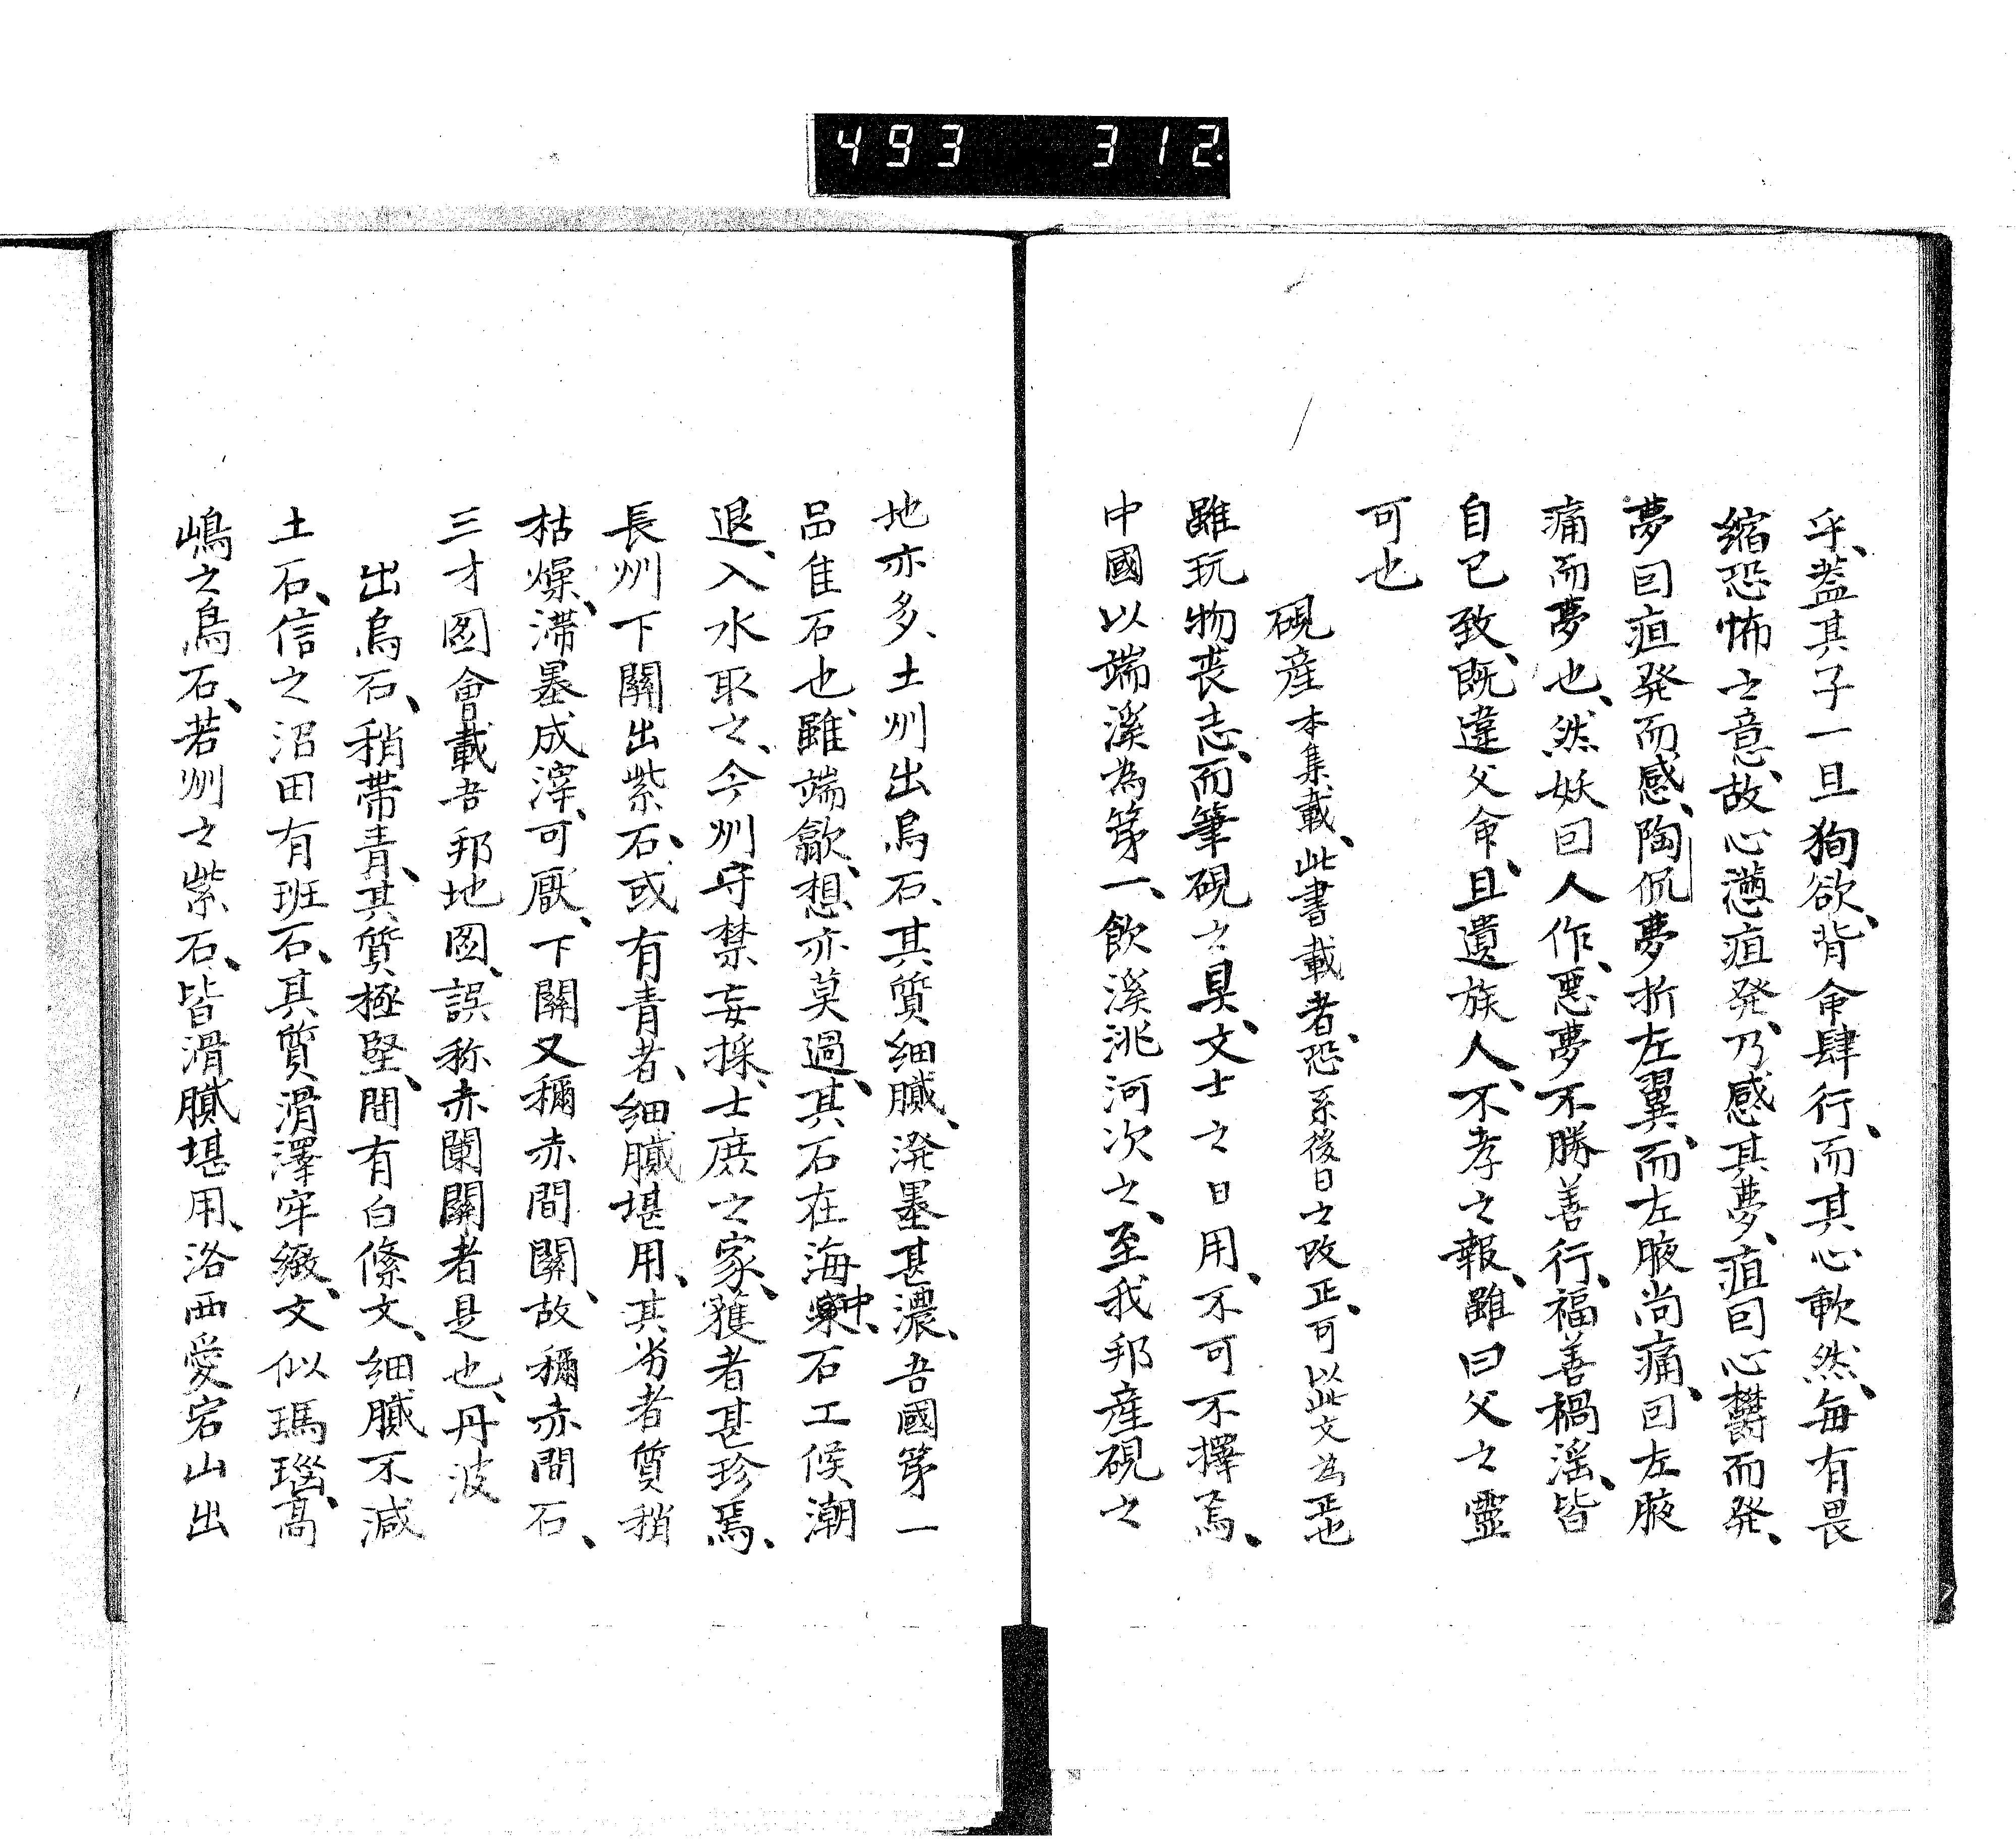 493 312.
乎、蓋其子一旦狥欲、背命肆行、而其心歉然、每有畏
縮恐怖之意、故心懣疽発、乃感其夢、疽回心欝而発、
夢回疽発而感、陶侃夢折左翼、而左腋尚痛、回左腋
痛而夢也、然妖回人作、悪夢不勝善行、福善禍淫、皆
自己致、既違父命、且遺族人、不孝之報、雖曰父之靈
可也
硯産 本集載、此書載者、恐系後日之改正、可以此文為正也
雖玩物喪志、而筆硯之具、文士之日用、不可不擇焉、
中國以端溪為第一、飲溪洮河次之、至我邦産硯之
地亦多、土州出烏石、其質細膩、溌墨甚濃、吾國第一
品隹石也、雖端歙、想亦莫過、其石在海中、石工候潮
退、入水取之、今州守禁妄採、士庶之家、獲者甚珍焉、
長州下關出紫石、或有青者、細膩堪用、其劣者質稍
枯燥、滞墨成滓、可厭、下關又稱赤間關、故稱赤間石、
三才圖會載吾邦地圖、誤称赤闌關者是也、丹波
出烏石、稍帶青、其質極堅、間有白條文、細膩不減
土石、信之沼田有班石、其質滑澤牢緻、文似瑪瑙、髙
嶋之烏石、若州之紫石、皆滑膩堪用、洛西愛宕山出